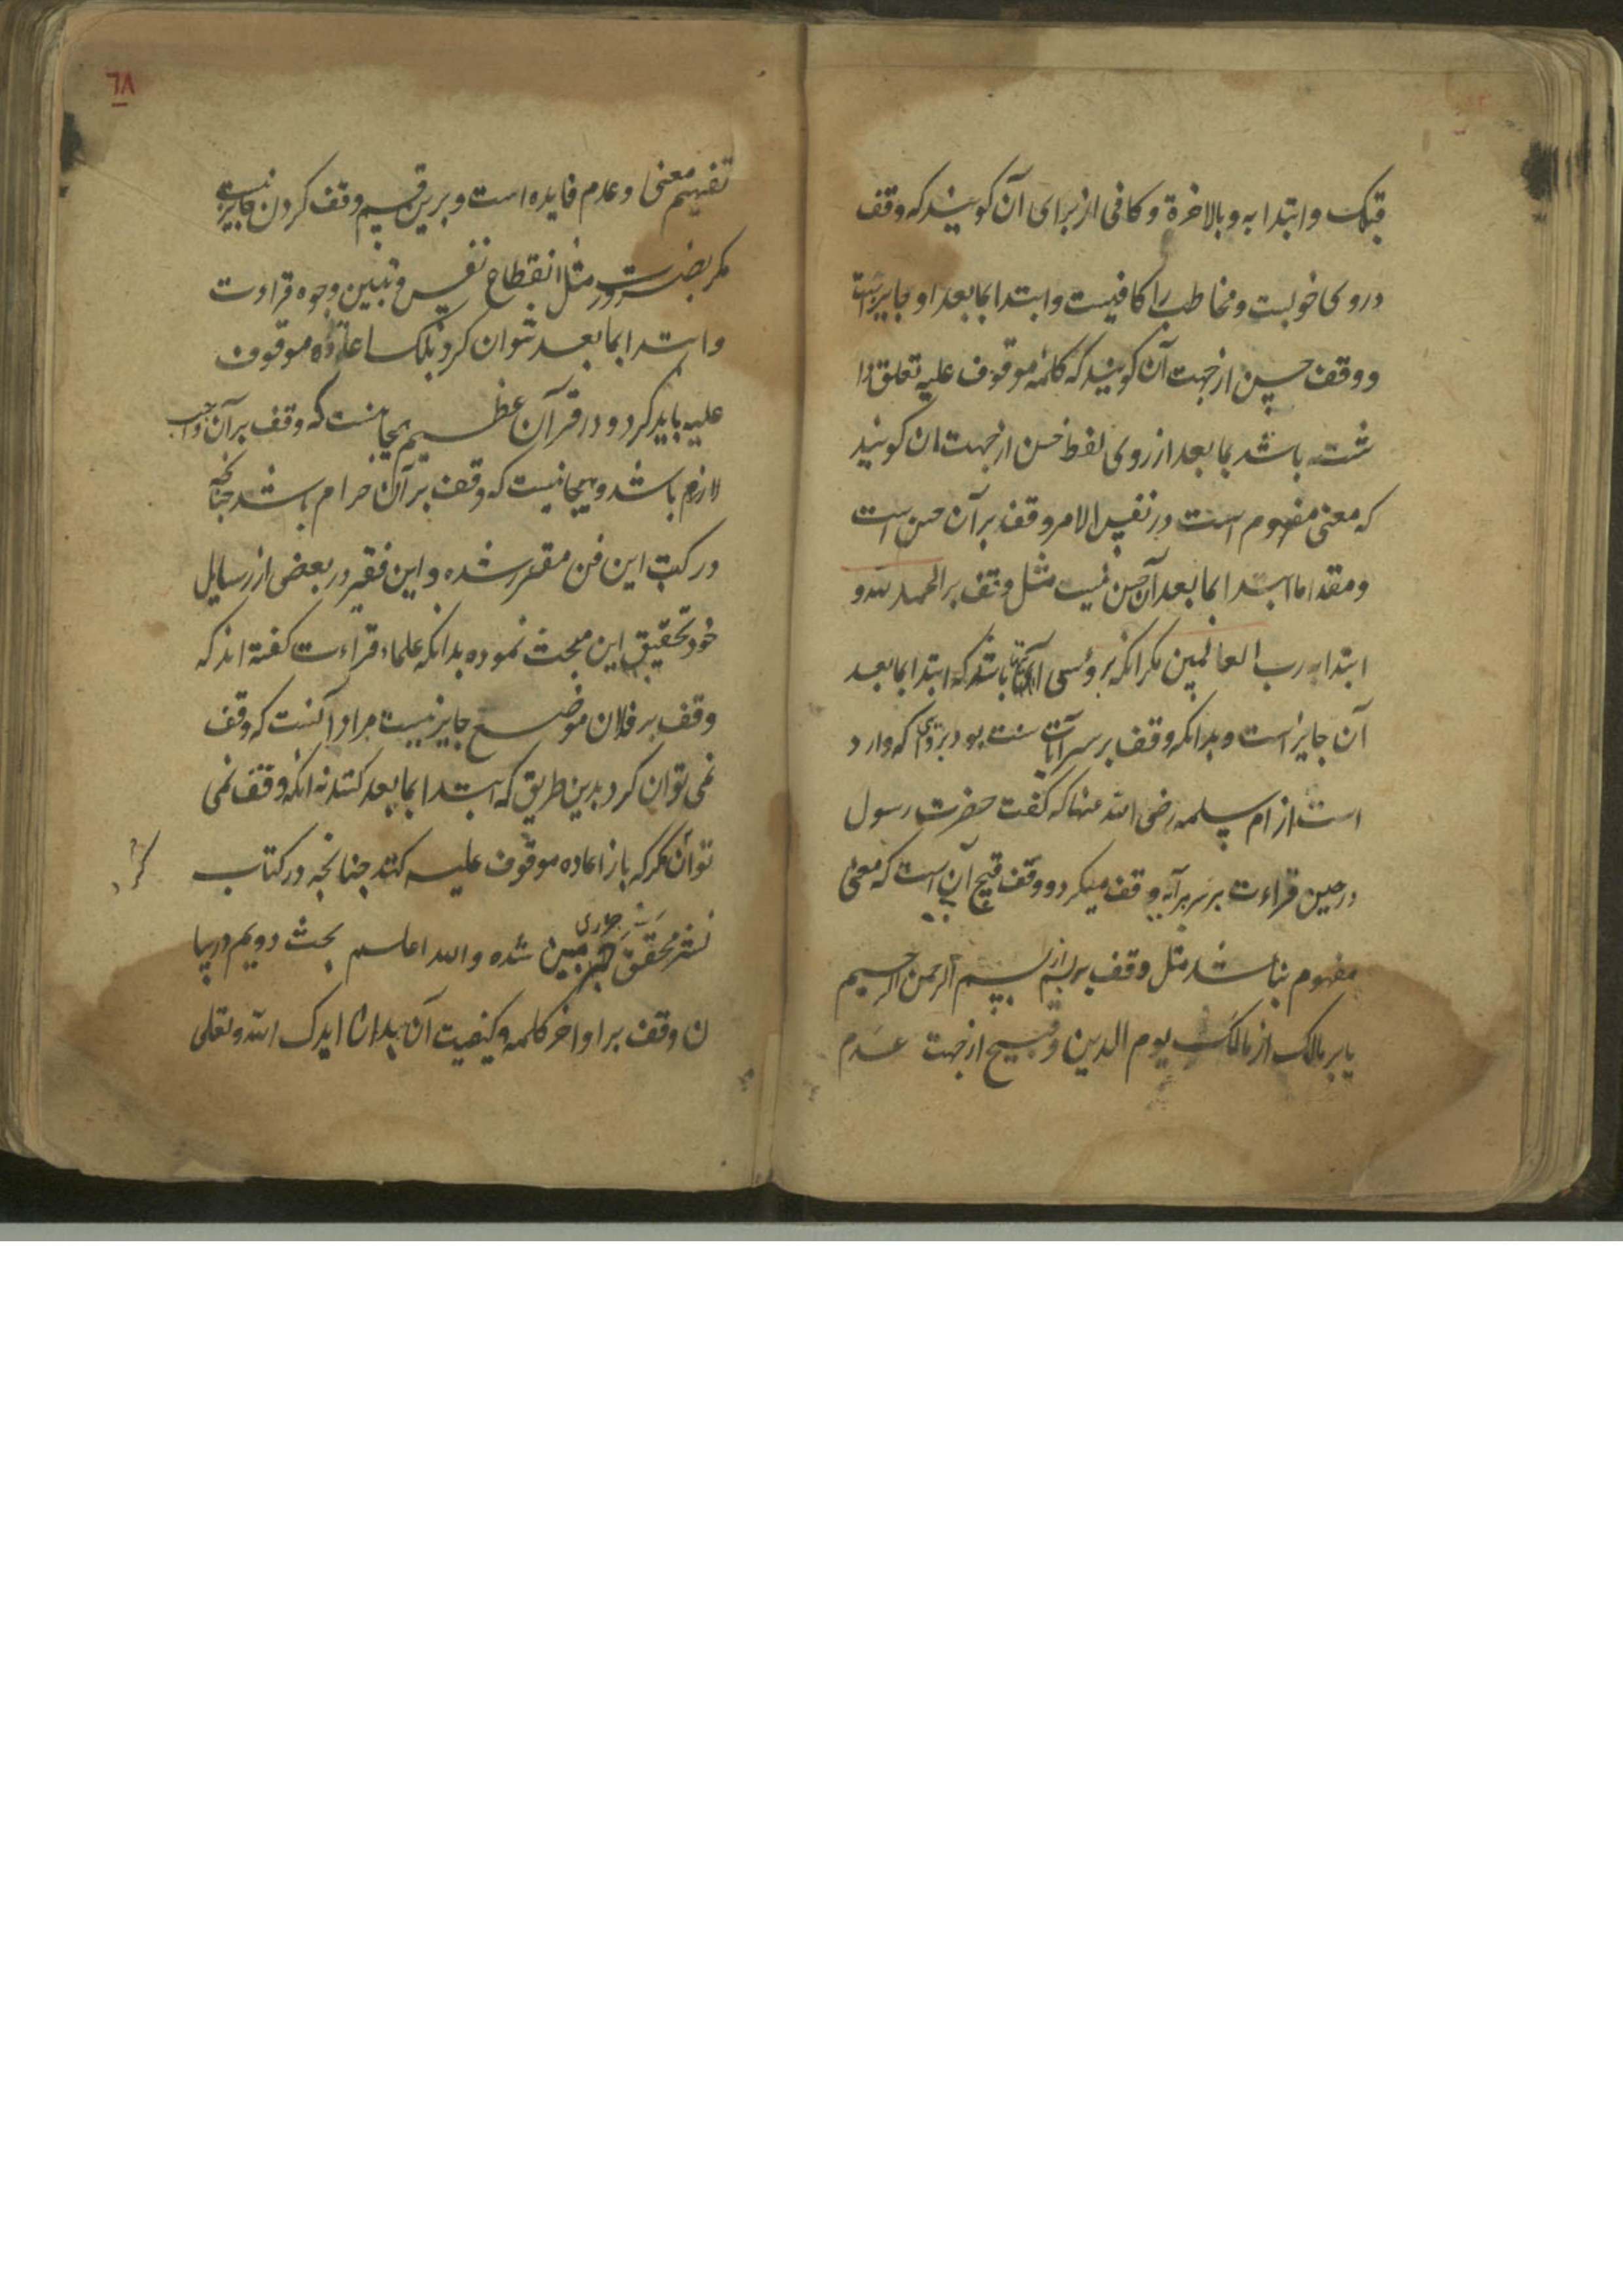 قبلک و ابتدا به و بالاخرة و کافی از برای آن کویند که وقف
در وی خوبست و مخاطب را کافیست و ابتدا بما بعد او جایز است
و وقف حسن از جهت آن کویند که کلمه موقوف علیه تعلق دا
شته باشد بما بعد از روی لفظ حسن از جهت ان کویند
که معنی مفهوم است در نفس الامر وقف بر آن حسن است
و مقدا اما ابتدا بما بعد آن حسن نیست مثل وقف بر الحمد لله و
ابتدا به رب العالمین مکر انکه بر وئسی آیتها باشد که ابتدا بما بعد
آن جایز است و بدانکه وقف بر سر آیات سنت بود بروی که وارد
است از ام سلمه رضی الله عنها که کفت حضرت رسول
در حین قراءت بر سر هر آیه وقف میکرد و وقف قبیح آن است که معنی
مفهوم نباشد مثل وقف بر بسم از بسم الرحمن الرحیم
یا بر مالک از مالک یوم الدین و قبیح از جهت عدم
٦٨
تفهیم معنی و عدم فایده است و برین قسم وقف کردن جایز نیست
مکر بضرورت مثل انقطاع نفس و تبیین وجوه قراءت
و ابتدا بما بعد نتوان کرد بلکه اعاده موقوف
علیه باید کرد و در قرآن عظیم هیچا نیست که وقف بر آن واجب
لازم باشد و هیچا نیست که وقف بر آن حرام باشد چنانچه
در کتب این فن مقرر شده و این فقیر در بعضی از رسایل
خود تحقیق این مبحث نموده بدانکه علماء قراءت کفته اند که
وقف بر فلان موضع جایز نیست مراد آنست که وقف
نمی توان کرد بدین طریق که ابتدا بما بعد کنند نه انکه وقف نمی
توان کرکه باز اعاده موقوف علیه کنند چنانچه در کتاب
نشر محقق جزری مبین شده و الله اعلم بحث دویم در بیا
ن وقف بر اواخر کلمه و کیفیت آن بدان ایدک الله و تعلی